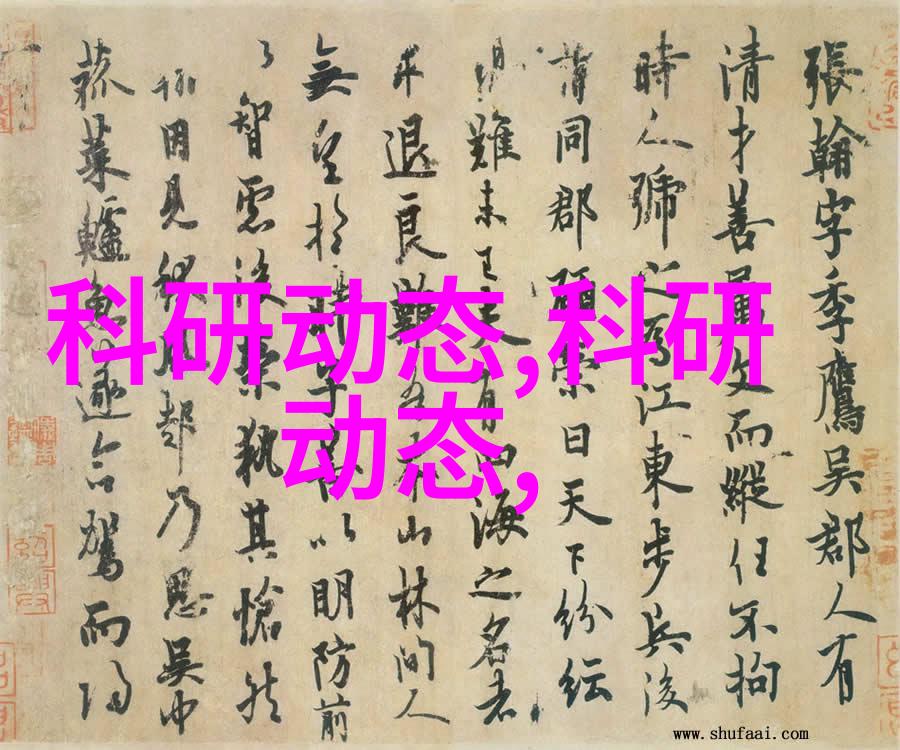 張翰字季鷹吳郡人有
清才善屬文而縱任不拘
時人號之為江東步兵後
同郡顧榮曰天下紛紜
難未已夫有四海之名者
求退良難吾本山林間人
無望於時子善以明防前
以智慮後榮執其愴然
翰因見秋風起乃思吳中
菰菜鱸魚遂命駕而歸
科研动态,科研
动态,
www.shufaai.com